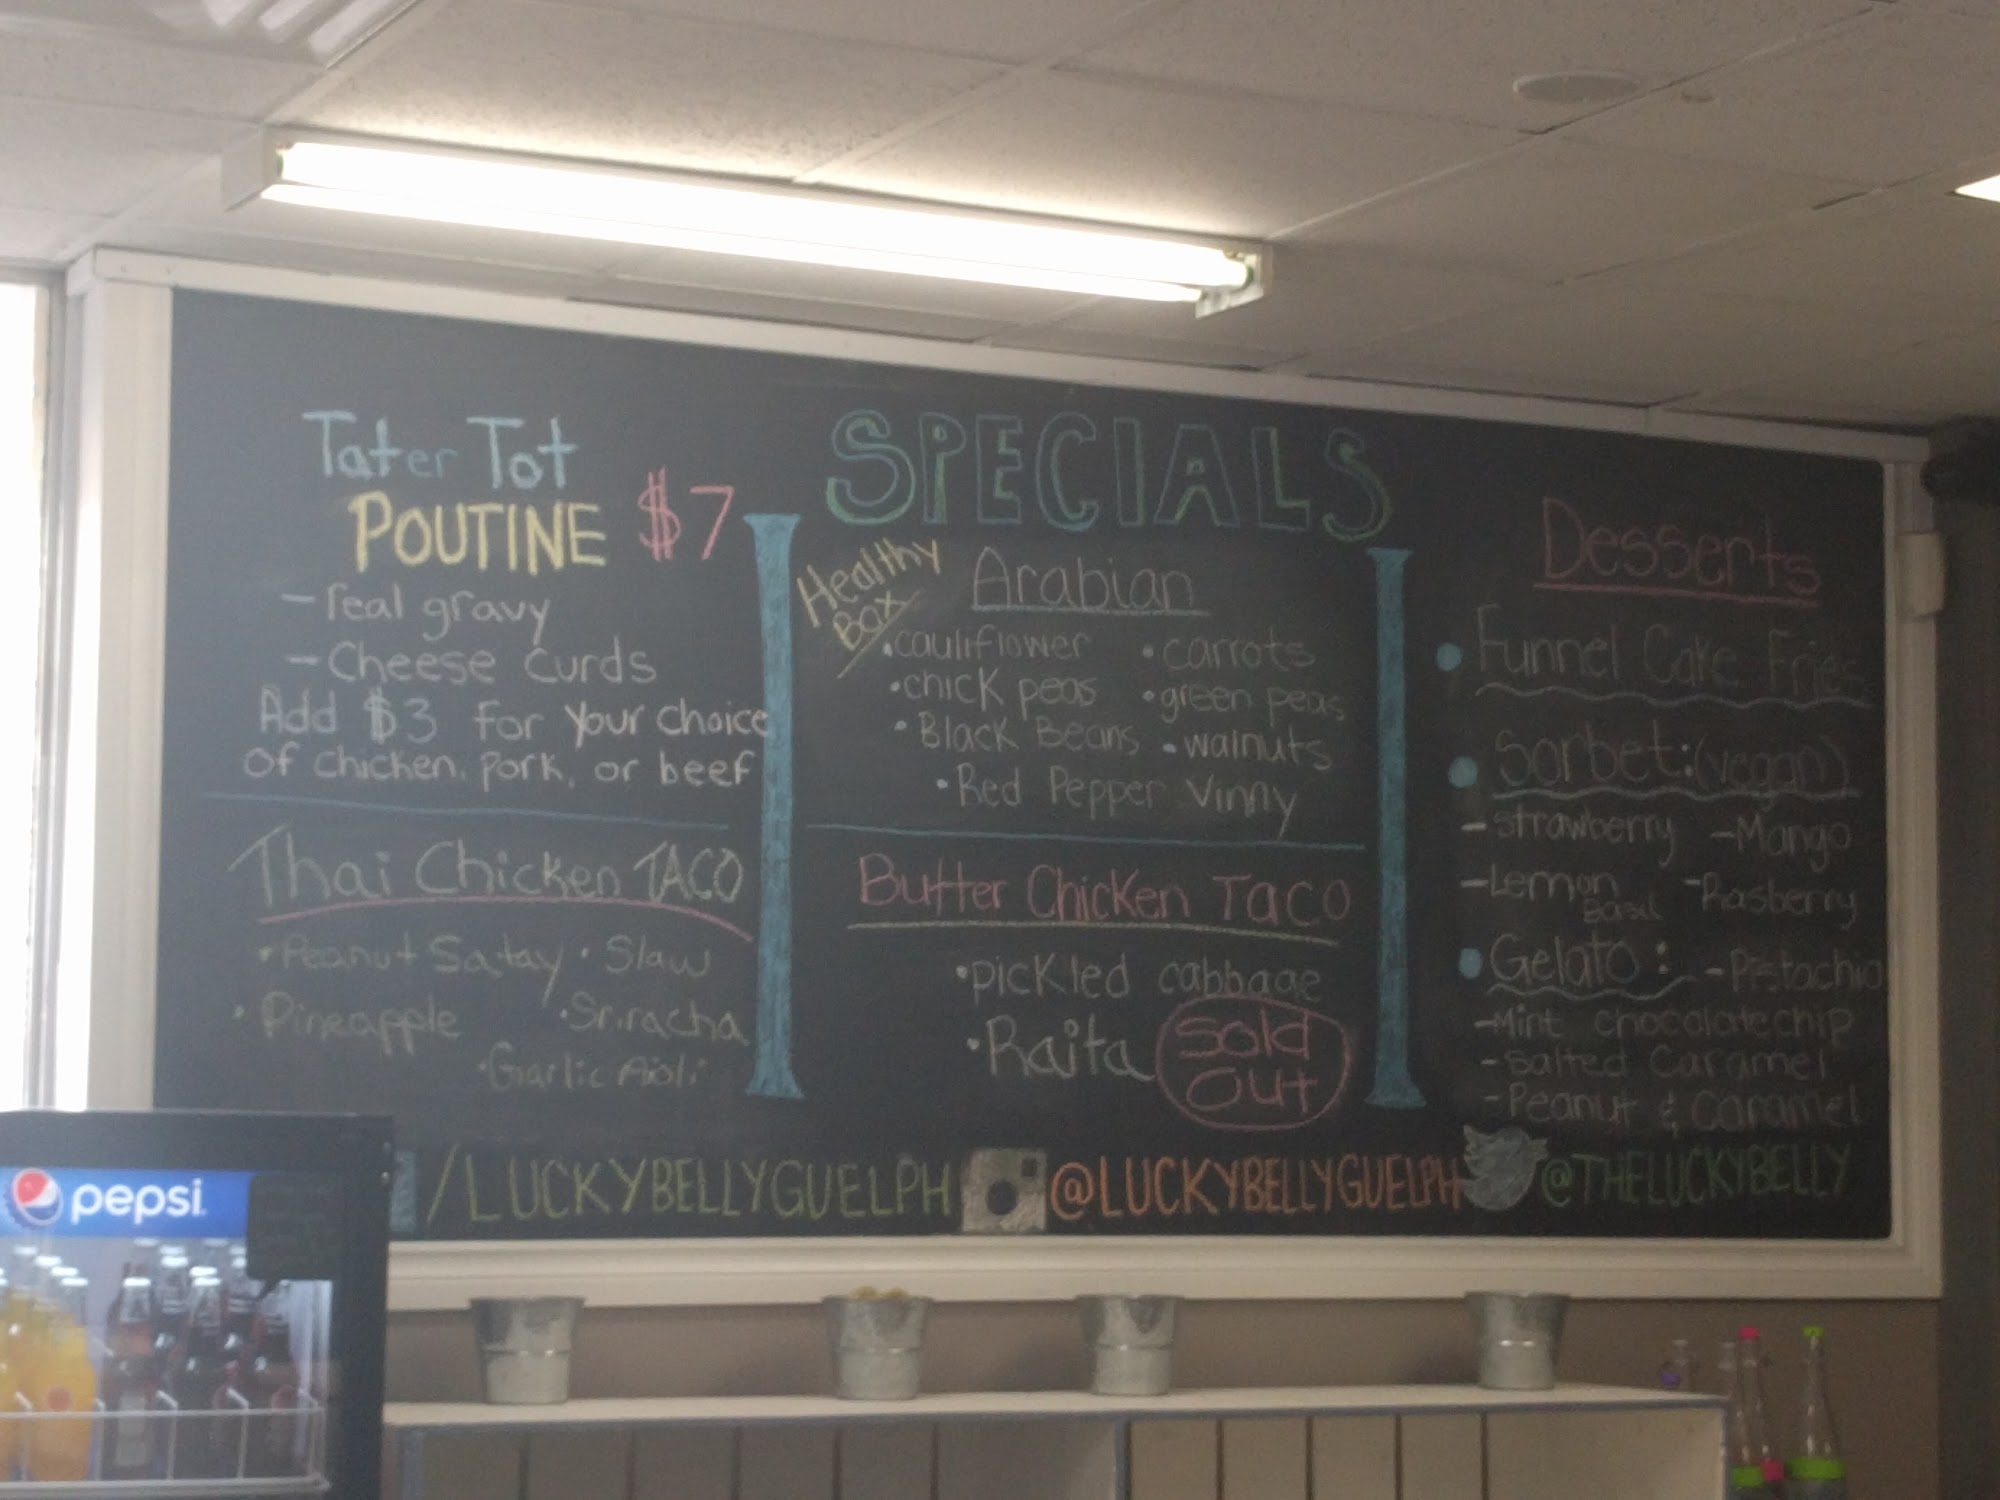 Tater Tot
POUTINE $7
- real gravy
- Cheese Curds
Add $3 for your choice
of chicken, pork, or beef
Thai Chicken TACO
• Peanut Satay • Slaw
• Pineapple • Sriracha
• Garlic Aioli
SPECIALS
Healthy
Box
Arabian
• cauliflower • carrots
• chick peas • green peas
• Black Beans • walnuts
• Red Pepper Vinny
Butter Chicken Taco
• pickled cabbage
• Raita
Sold
Out
Desserts
• Funnel Cake Fries
• Sorbet: (vegan)
- strawberry - Mango
- Lemon - Rasberry
Basil
• Gelato: - Pistachio
- Mint chocolate chip
- Salted Caramel
- Peanut & Caramel
/LUCKYBELLYGUELPH @LUCKYBELLYGUELPH @THELUCKYBELLY
pepsi